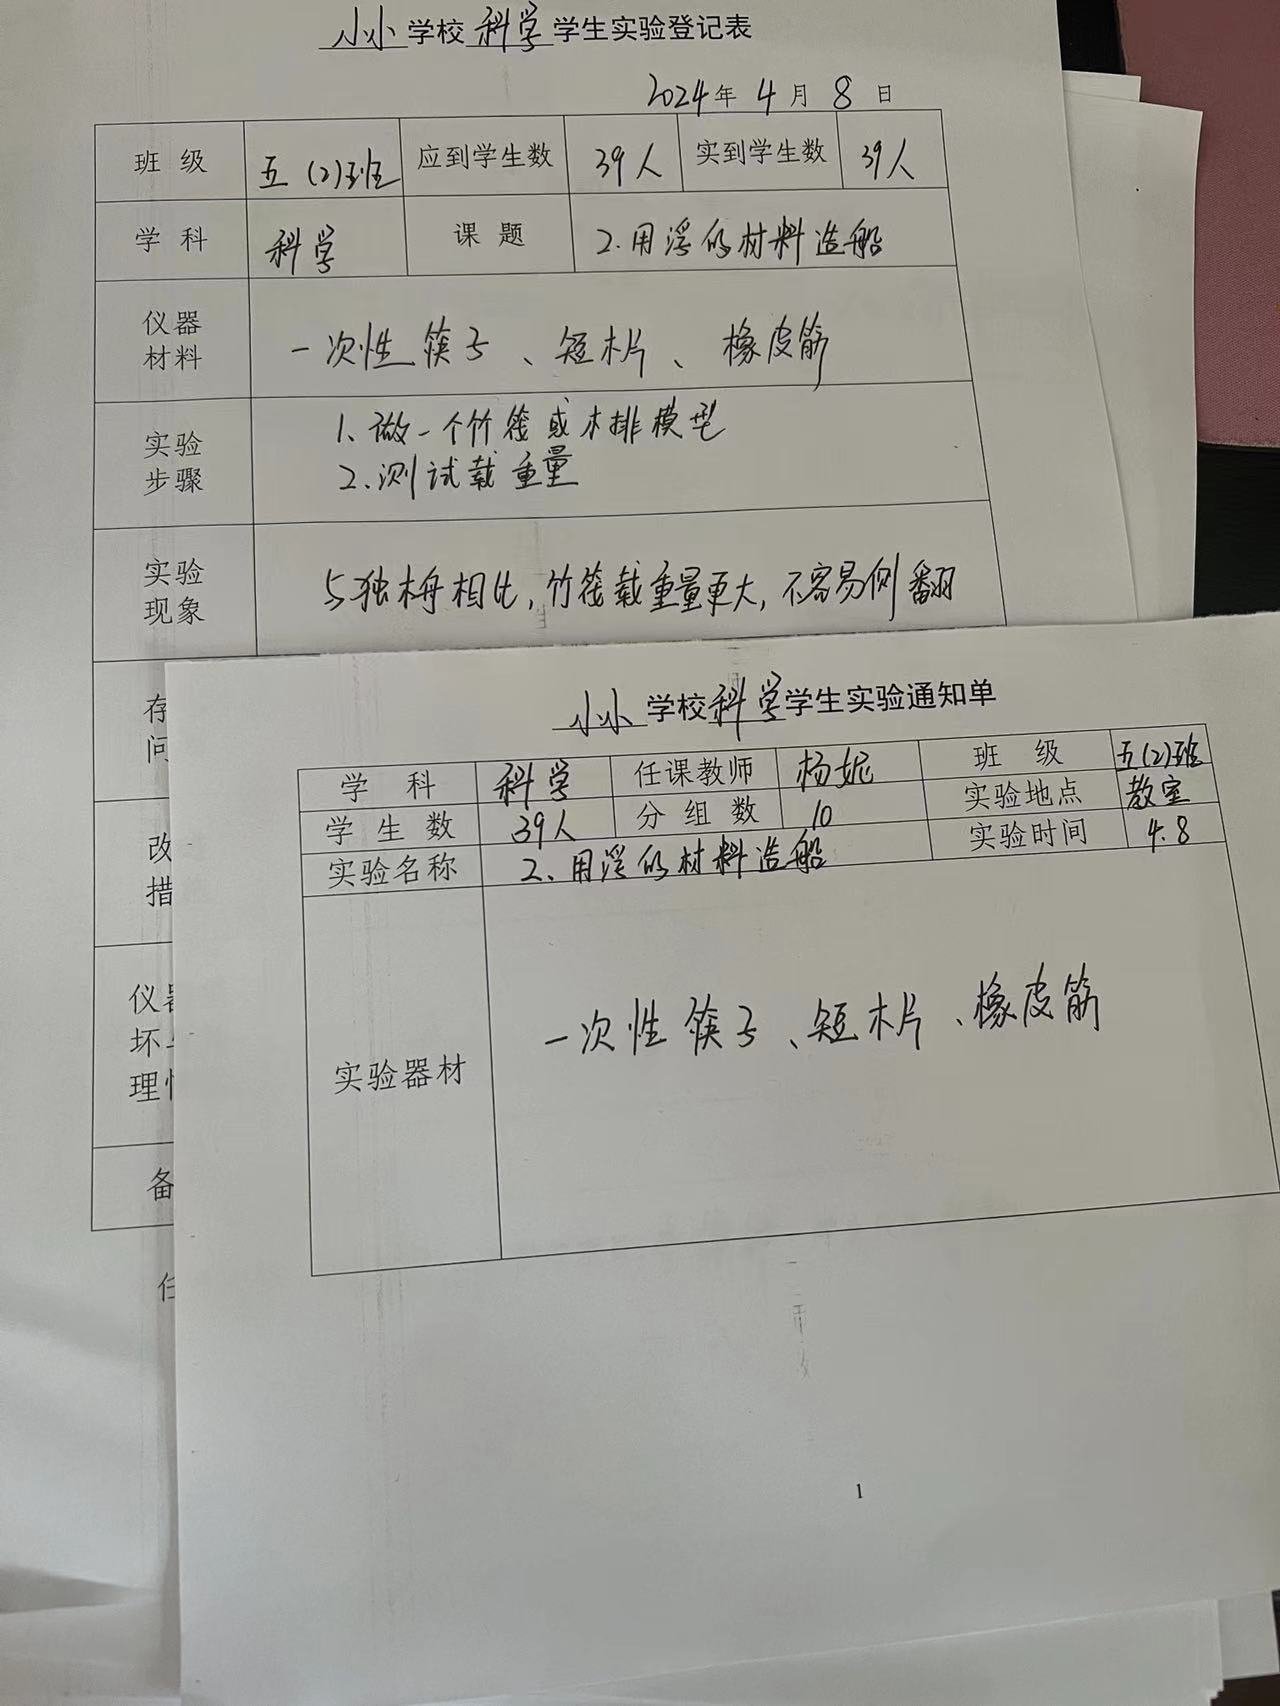 小小学校科学学生实验登记表
2024年4月8日
班级 五(2)班 应到学生数 39人 实到学生数 39人
学科 科学 课题 2.用浮的材料造船
仪器材料 一次性筷子、短木片、橡皮筋
实验步骤 1、做一个竹筏或木排模型
2、测试载重量
实验现象 与独木舟相比,竹筏载重量更大,不容易侧翻
存
问
改
措
仪器
坏
理
备
任
小小学校科学学生实验通知单
学科 科学 任课教师 杨妮 班级 五(2)班
学生数 39人 分组数 10 实验地点 教室
实验名称 2、用浮的材料造船 实验时间 4.8
实验器材 一次性筷子、短木片、橡皮筋
1